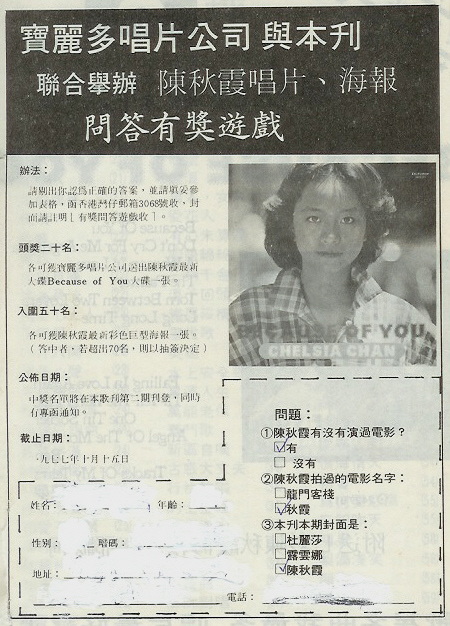 寶麗多唱片公司與本刊
聯合舉辦 陳秋霞唱片、海報
問答有獎遊戲
辦法：
請剔出你認爲正確的答案，並請填妥參
加表格，函香港灣仔郵箱3068號收，封
面請註明「有獎問答遊戲收」。
頭獎二十名：
各可獲寶麗多唱片公司送出陳秋霞最新
大碟Because of You大碟一張。
入圍五十名：
各可獲陳秋霞最新彩色巨型海報一張。
（答中者，若超出70名，則以抽簽決定）
公佈日期：
中獎名單將在本歌刊第二期刊登，同時
有專函通知。
截止日期：
一九七七年十月十五日
BECAUSE OF YOU
CHELSIA CHAN
問題：
①陳秋霞有沒有演過電影？
有
沒有
②陳秋霞拍過的電影名字：
龍門客棧
秋霞
③本刊本期封面是：
杜麗莎
露雲娜
陳秋霞
姓名： 年齡：
性別： 暗碼：
地址：
電話：